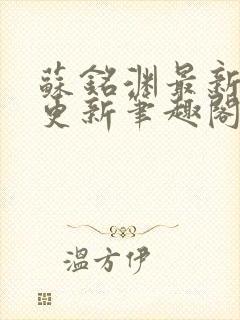 蘇銘淵最新
更新筆趣閣
溫方伊